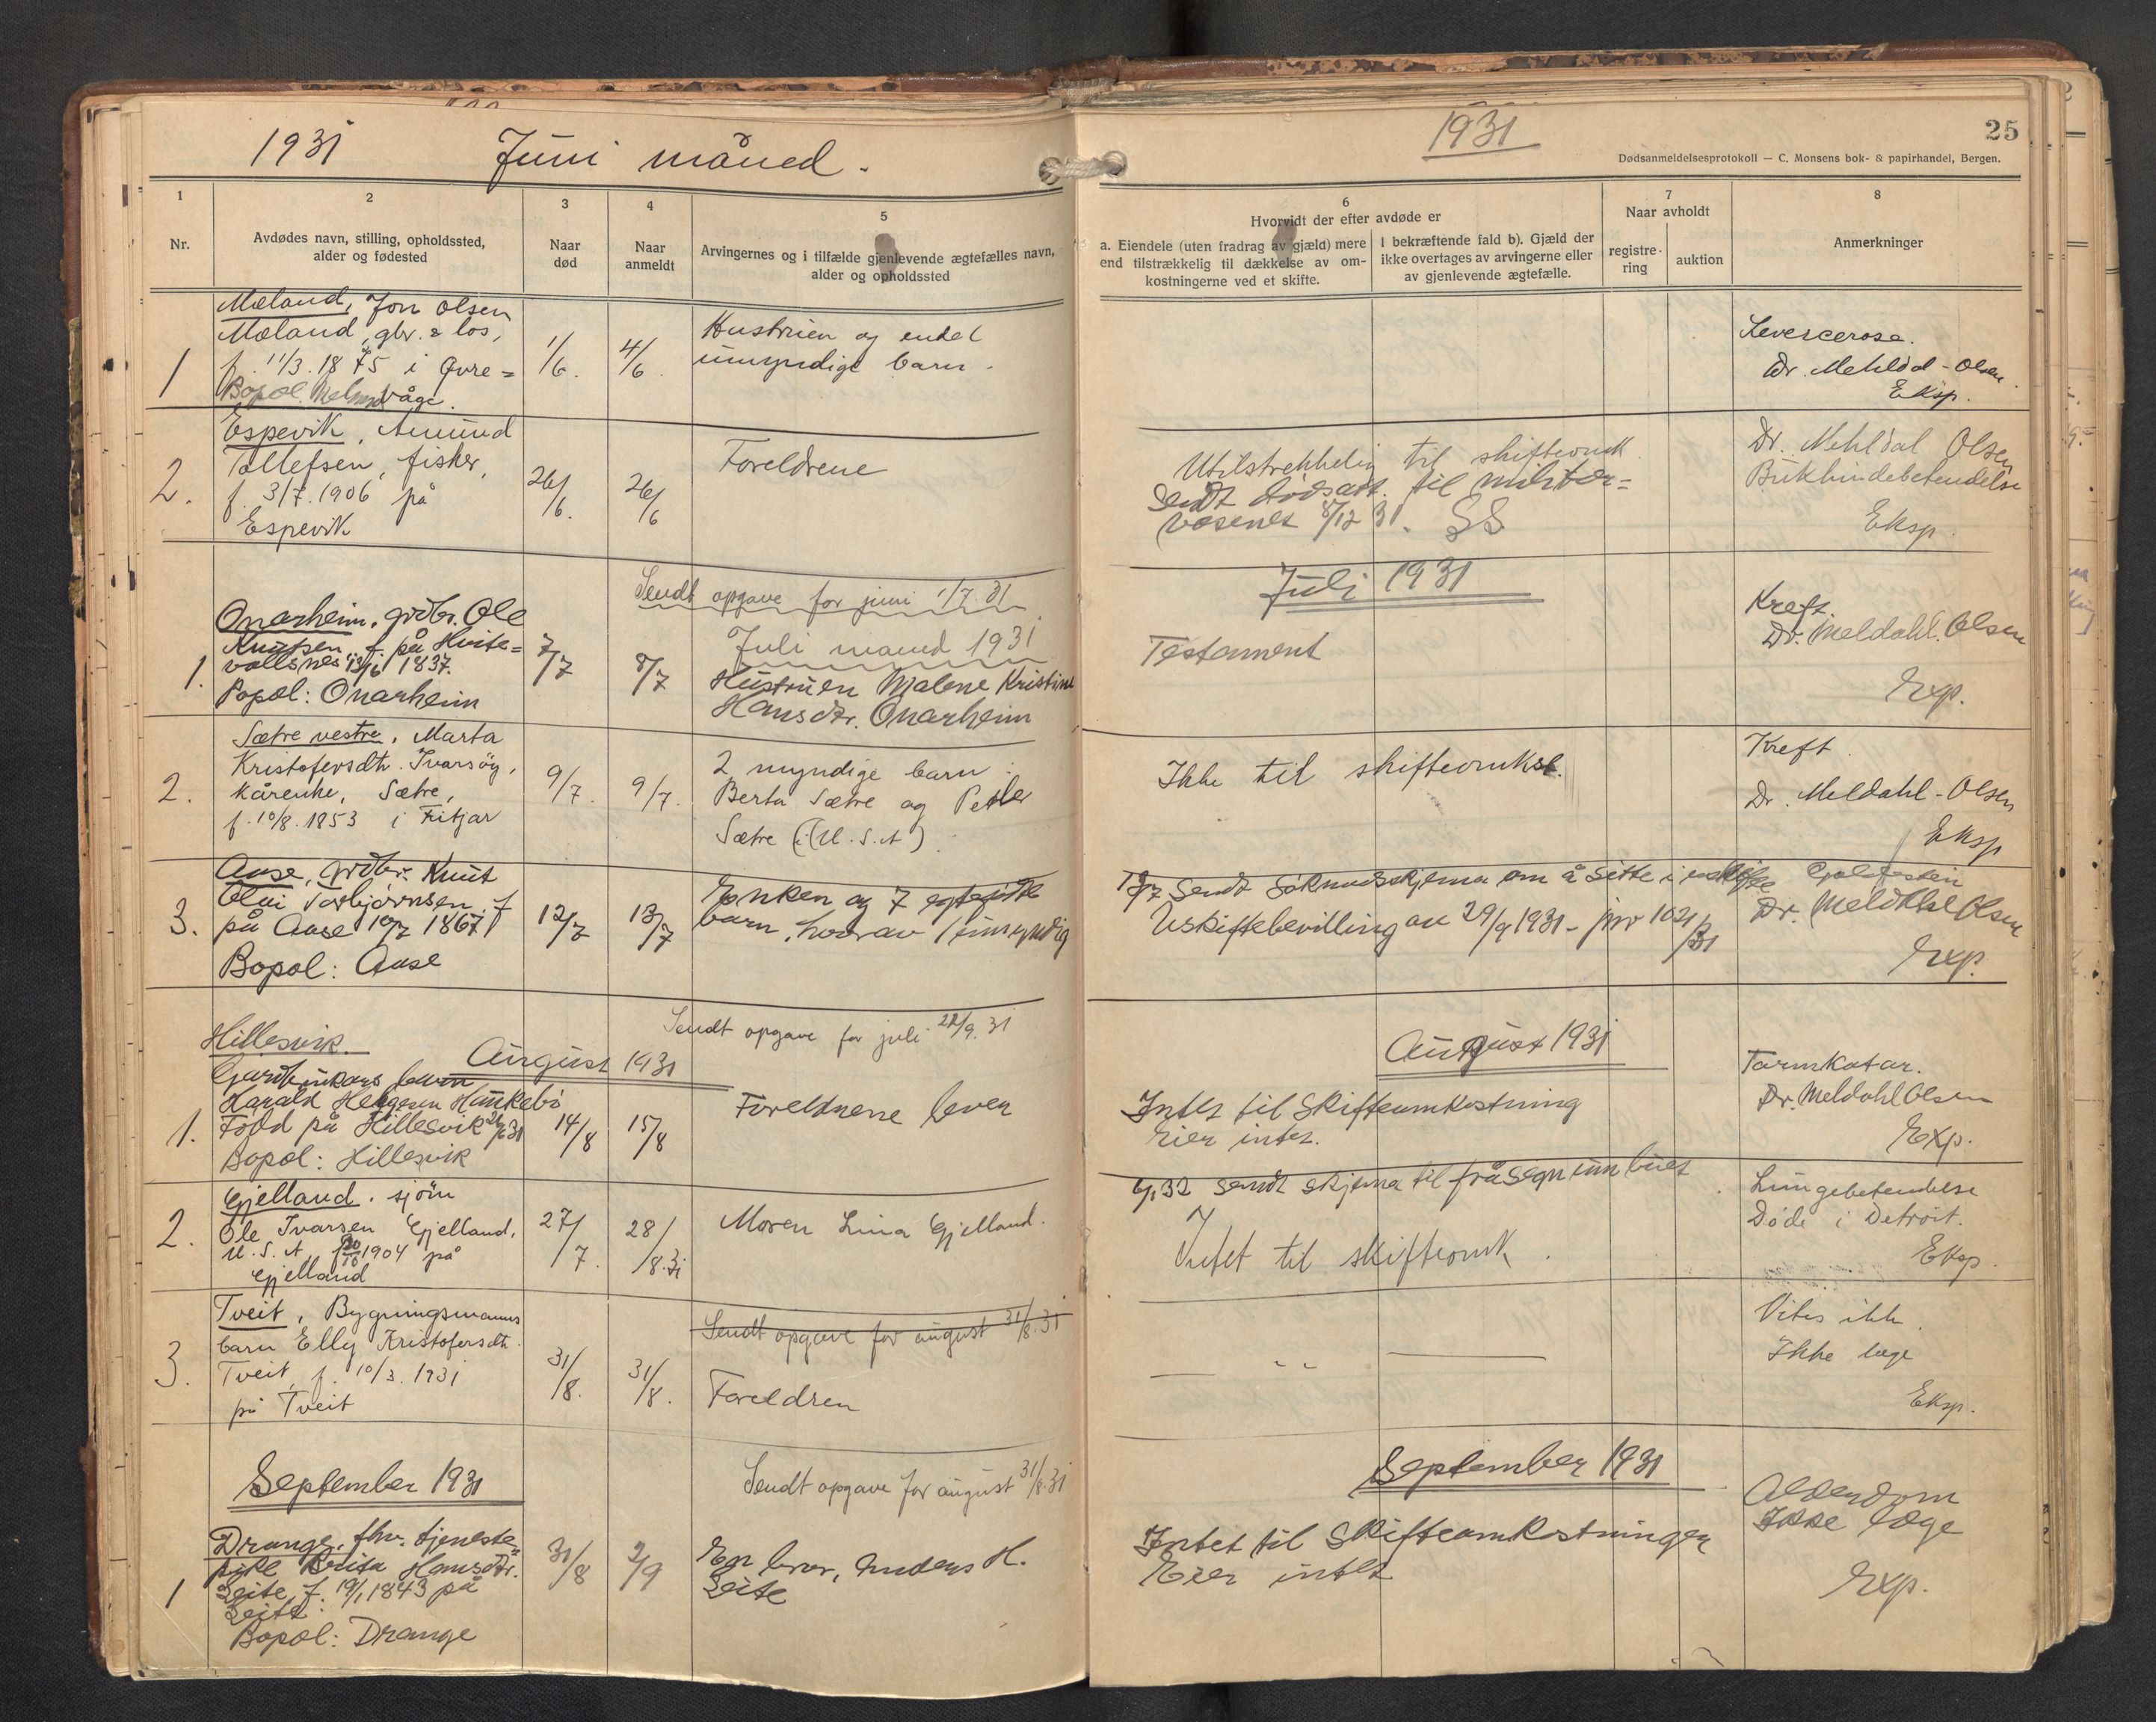 1931 Juni måned.
1
2
3
4
5
Nr.
Avdødes navn, stilling, opholdssted,
alder og fødested
Naar
død
Naar
anmeldt
Arvingernes og i tilfælde gjenlevende ægtefælles navn,
alder og opholdssted
Mæland, Jon Olsen
Mæland, gbr. & los,
1
f. 11/3. 1875 i Øvre=
Bopæl. våge.
1/6.
4/6.
Hustruen og endel
umyndige barn.
Espevik, Amund
2.
Tollefsen, fisker,
f. 3/7. 1906 på
Espevik
26/6.
26/6
Foreldrene
Sendt opgave for juni 1/7.31
Juli månd 1931
Onarheim, grdbr. Ole
1.
Knutsen f. på Hvite=
vollsnes 13/6 1837.
Bopæl: Onarheim
7/7
8/7
Hustruen Malene Kristine
Hansdtr. Onarheim
Sætre vestre, Marta
2.
Kristofersdtr. Ivarsøy,
kårenke, Sætre,
f. 10/8. 1853 i Fitjar
9/7.
9/7.
2 myndige barn:
Berta Sætre og Peder
Sætre (i U.S.A).
Aase, grdbr. Knut
3.
Olai Torbjørnsen f
på Aase 10/7 1867
Bopæl: Aase
12/7
13/7
Enken og 7 egtefødte
barn, hvorav 1 umyndig
Sendt opgave for juli 22/9.31
August 1931
Hillesvik.
Gardbrukars barn
1.
Harald Helgesen Hinkebø
Født på Hillesvik
Bopæl: Hillesvik
14/8
15/8
Foreldrene lever
Gjelland. sjøm
2.
Ole Ivarsen Gjelland,
U.S.A, f 20/10 1904 på
Gjelland
27/7.
28/8.31
Moren Lina Gjelland.
Sendt opgave for august 31/8.31
Tveit, Bygningsmanns
3.
barn Elly Kristofersdtr.
Tveit, f. 10/3. 1931
på Tveit
31/8.
31/8.
Foreldren
Sendt opgave for august 31/8.31
September 1931
Drange, fhv. tjeneste=
1
pike Brita Hansdtr.
Leite, f. 19/1 1843 på
Leite.
Bopæl: Drange
31/8
2/9
En bror, Anders H.
Leite
1931
25
Dødsanmeldelsesprotokoll — C. Monsens bok- & papirhandel, Bergen.
6
Hvorvidt der efter avdøde er
a. Eiendele (uten fradrag av gjæld) mere
end tilstrækkelig til dækkelse av om-
kostningerne ved et skifte.
I bekræftende fald b). Gjæld der
ikke overtages av arvingerne eller
av gjenlevende ægtefælle.
7
Naar avholdt
registre-
ring
auktion
8
Anmerkninger
Levercerose.
Dr. Mehldal-Olsen.
Eksp.
Utilstrekkelig til skifteomk.
Sendt dødsatt. til militær=
vesenet 8/12 31.
Dr. Mehldal Olsen
Bukhindebetendelse
Eksp.
Juli 1931
Testament
Kreft.
Dr. Meldahl. Olsen
Exp.
Ikke til skifteomkst.
Kreft.
Dr. Meldahl-Olsen
Eksp
Sendt søknadskjema om å sitte i uskifte
Uskiftebevilling av 29/9 1931 - jnr 1021/31
Dr. Meldahl Olsen
Exp.
August 1931
Intet til skifteomkostning
Eier intet.
Tarmkatar.
Dr. Meldahl Olsen
Exp.
sendt skjema til fråsegn um buet
Intet til skifteomk.
Lungebetendelse
Døde i Detroit.
Eksp.
— " —
Vites ikke.
Ikke læge
Eksp.
September 1931
Intet til skifteomkostninger
Eier intet
Alderdom
Ikke læge
Exp.